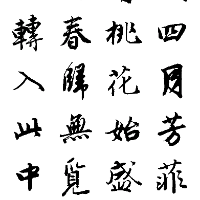 四月芳菲
桃花始盛
春歸無覓
轉入此中